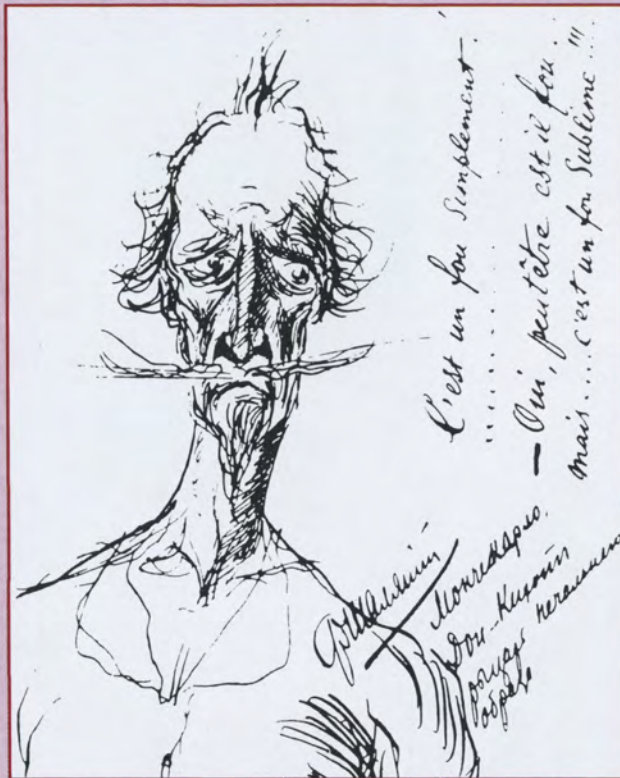 C'est un fou simplement.
.............
— Oui, peutêtre est il fou..
mais.... c'est un fou Sublime...!!!
ФШаляпин
Монтекарло.
Дон-Кихот
рыцарь печального
образа